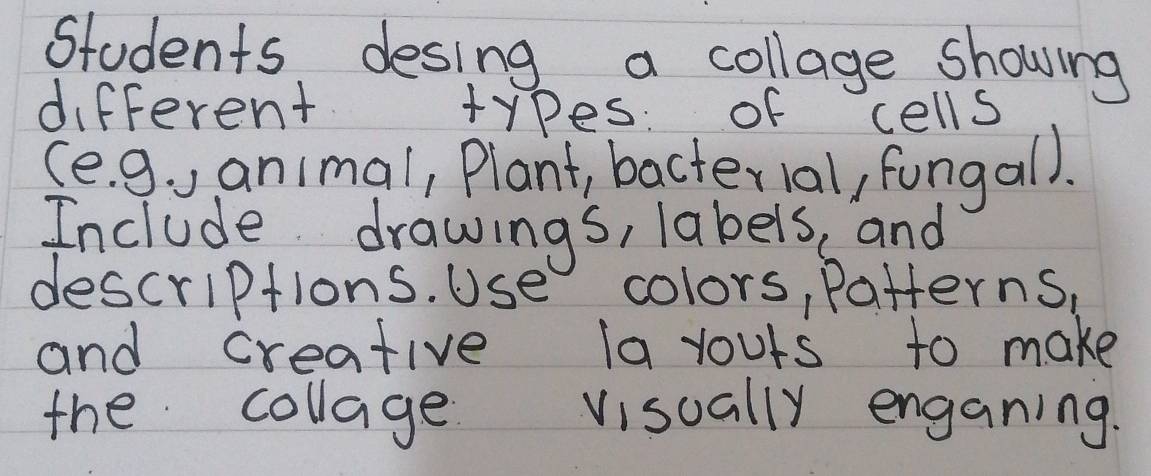 Students desing a collage showing
different types of cells
(e.g., animal, Plant, bacterial, fungal).
Include drawings, labels, and
descriptions. Use colors, Patterns,
and creative la youts to make
the collage visually enganing.